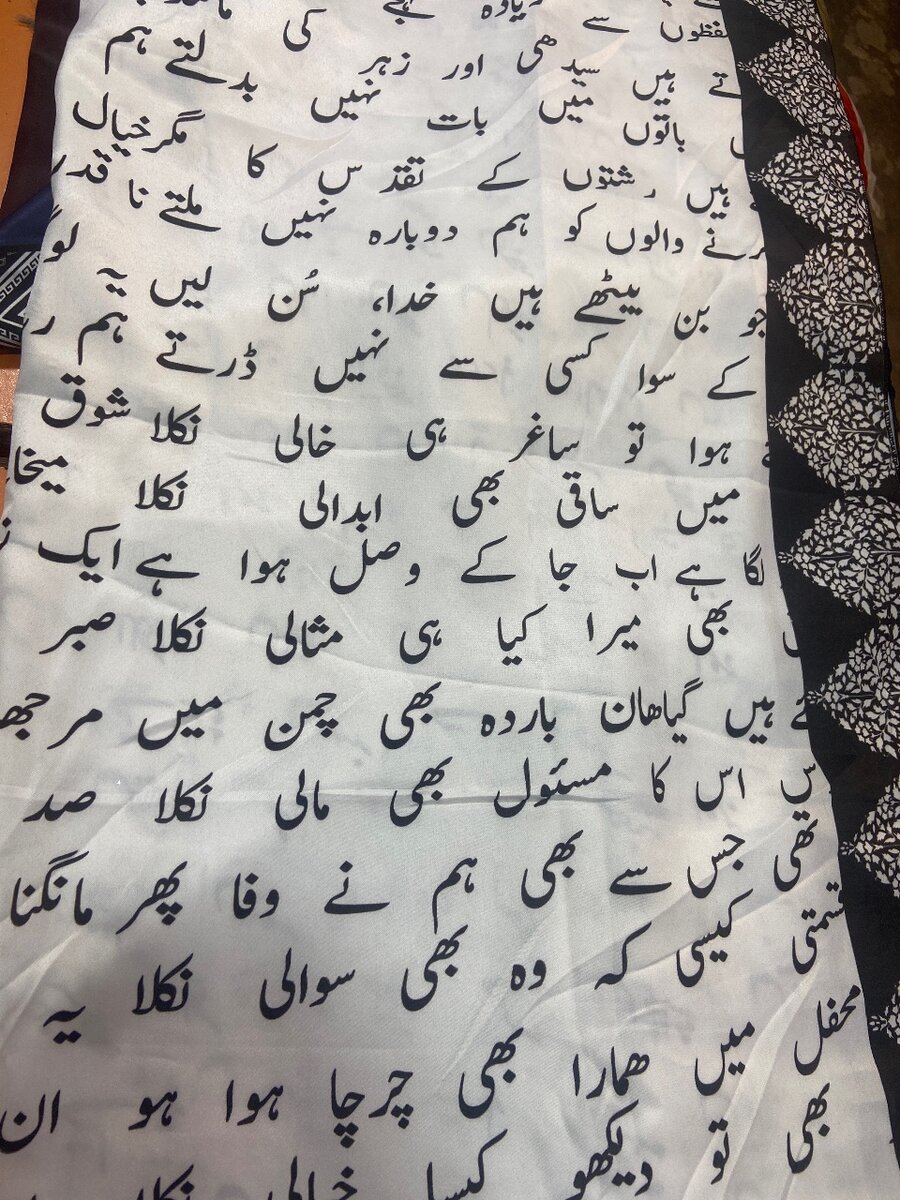 سے زیادہ کی
ہیں سیدھی اور زہر نہیں بدلتے ہم
باتوں میں بات نہیں مگر خیال
ہیں رشتوں کے تقدس کا نا قدر
والوں کو ہم دوبارہ نہیں ملتے لوگ
جو بن بیٹھے ہیں خدا، سُن لیں یہ
کے سوا کسی سے نہیں ڈرتے ہم
ہوا تو ساغر ہی خالی نکلا شوق
میں ساقی بھی ابدالی نکلا
لگا ہے اب جا کے وصل ہوا ہے ایک
بھی میرا کیا ہی مثالی نکلا صبر
ہیں گیاھان باردہ بھی چمن میں
اس کا مسئول بھی مالی نکلا صد
تھی جس سے بھی ہم نے وفا پھر مانگنا
قسمتی کیسی کہ وہ بھی سوالی نکلا یہ
محفل میں ھمارا بھی چرچا ہوا ہو ان
بھی تو دیکھو کیسا خیالی نکلا